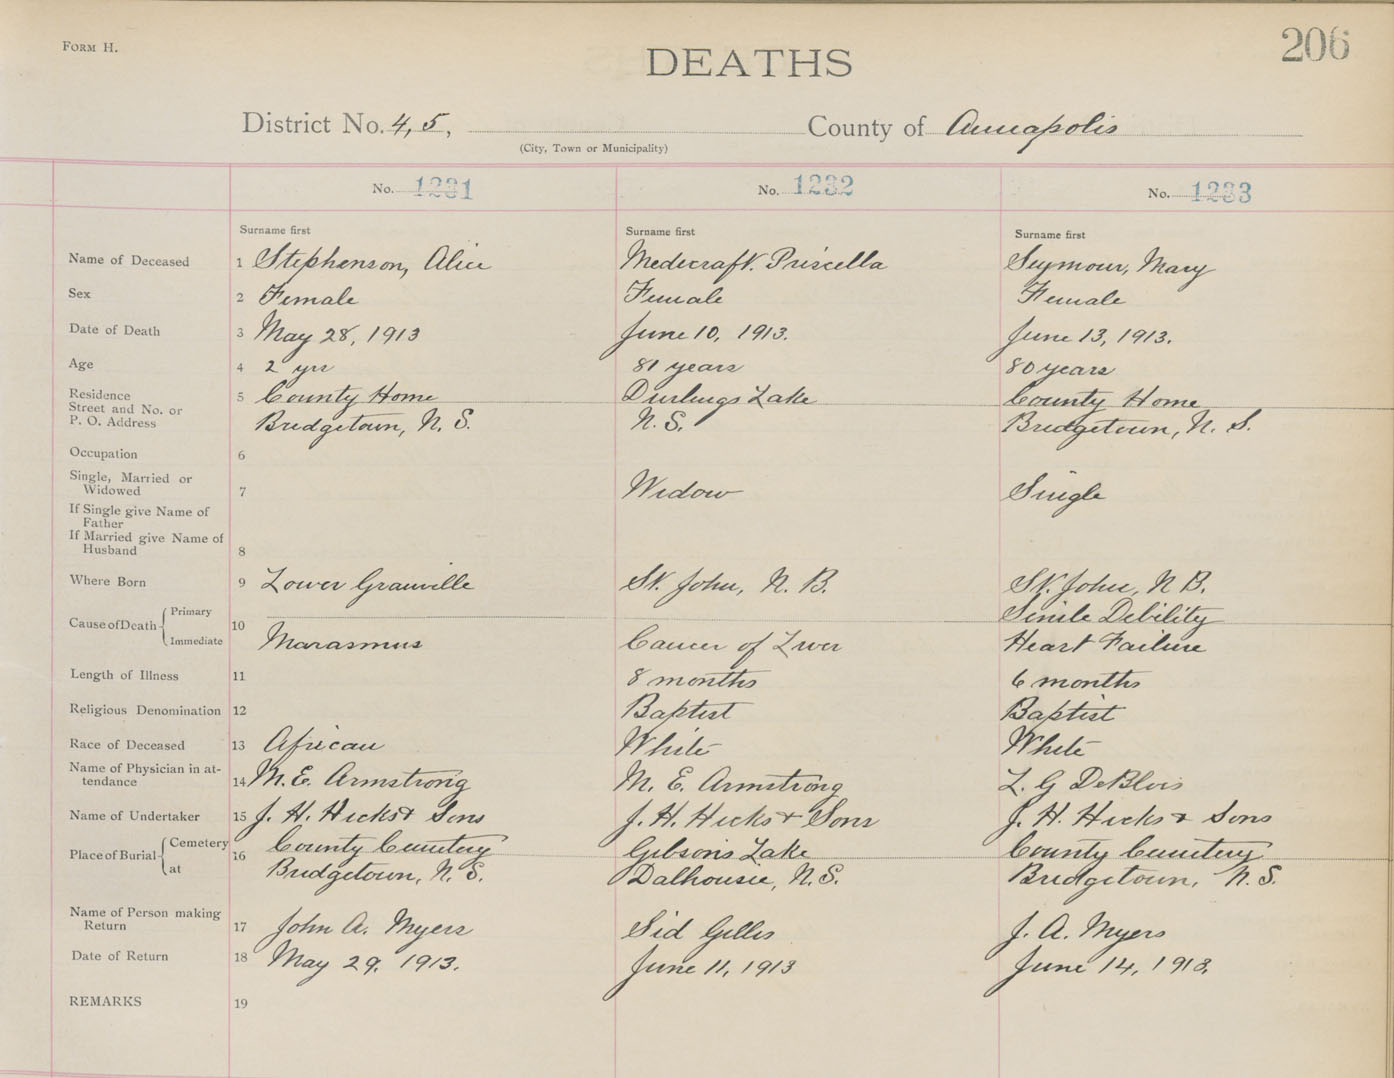 FORM H.
206
DEATHS
District No. 4, 5,
County of Annapolis
(City, Town or Municipality)
No. 1231
No. 1232
No. 1233
Surname first
Surname first
Surname first
Name of Deceased 1 Stephenson, Alice Medicraft. Priscella Seymour, Mary
Sex 2 Female Female Female
Date of Death 3 May 28, 1913 June 10, 1913. June 13, 1913.
Age 4 2 yrs 81 years 80 years
Residence 5 County Home Durlings Lake County Home
Street and No. or
P. O. Address Bridgetown, N. S. N. S. Bridgetown, N. S.
Occupation 6
Single, Married or
Widowed 7 Widow Single
If Single give Name of
Father
If Married give Name of
Husband 8
Where Born 9 Lower Granville St. John, N. B. St. John, N B.
Cause of Death Primary 10 Senile Debility
Immediate Marasmus Cancer of Liver Heart Failure
Length of Illness 11 8 months 6 months
Religious Denomination 12 Baptist Baptist
Race of Deceased 13 African White White
Name of Physician in at-
tendance 14 M. E. Armstrong M. E. Armstrong L. G DeBlois
Name of Undertaker 15 J. H. Hicks & Sons J. H. Hicks & Sons J. H. Hicks & Sons
Place of Burial Cemetery 16 County Cemetery Gibson's Lake County Cemetery
at Bridgetown, N. S. Dalhousie, N. S. Bridgetown, N. S.
Name of Person making
Return 17 John A. Myers Sid Gillis J. A. Myers
Date of Return 18 May 29, 1913. June 11, 1913 June 14, 1913.
REMARKS 19